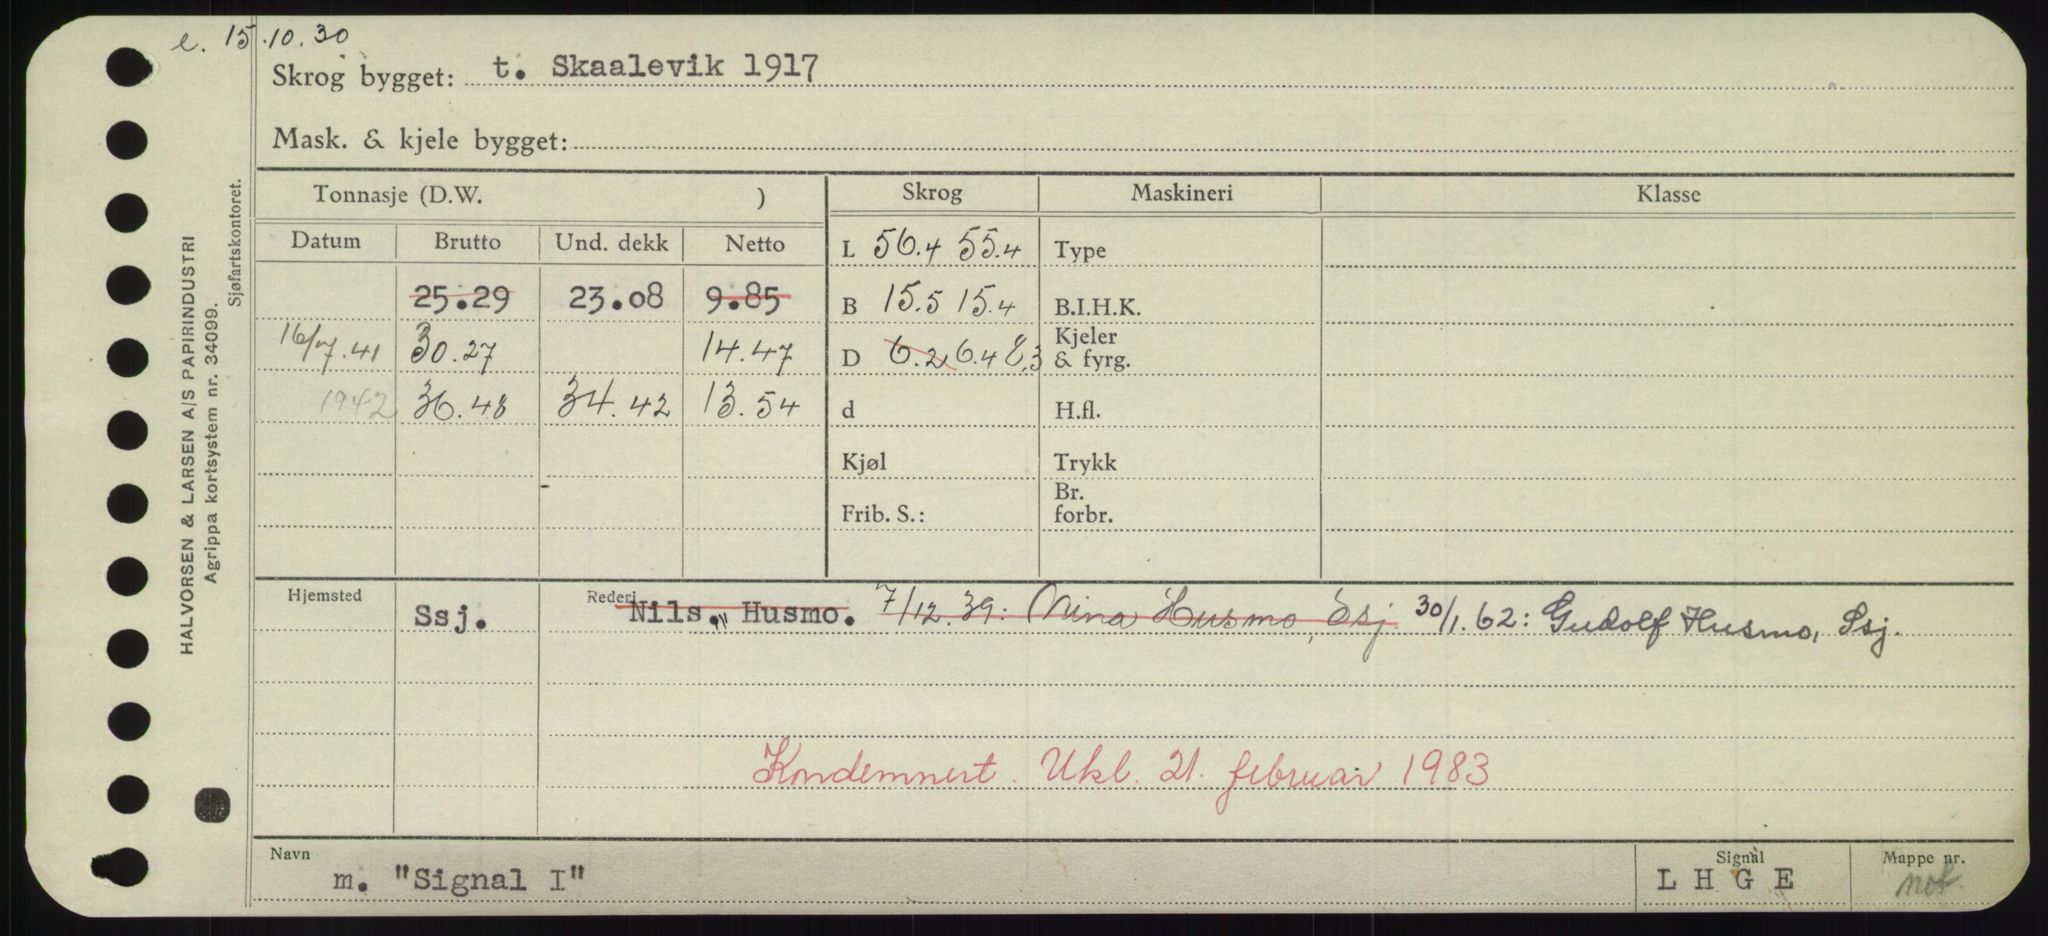 e. 15.10.30
Skrog bygget: t. Skaalevik 1917
Mask. & kjele bygget:
HALVORSEN & LARSEN A/S PAPIRINDUSTRI
Agrippa kortsystem nr. 34099.
Sjøfartskontoret.
Tonnasje (D.W. ) Skrog Maskineri Klasse
Datum Brutto Und. dekk Netto L 56.4 55.4 Type
25.29 23.08 9.85 B 15.5 15.4 B.I.H.K.
16/7.41 30.27 14.47 D 6.2 6.4 8.3 Kjeler & fyrg.
1942 36.48 34.42 13.54 d H.fl.
Kjøl Trykk
Frib. S.: Br. forbr.
Hjemsted Ssj. Rederi Nils Husmo. 7/12.39: Nina Husmo, Ssj. 30/1.62: Gudolf Husmo, Ssj.
Kondemnert. Ukl. 21. februar 1983
Navn m. "Signal I" Signal L H G E Mappe nr. not